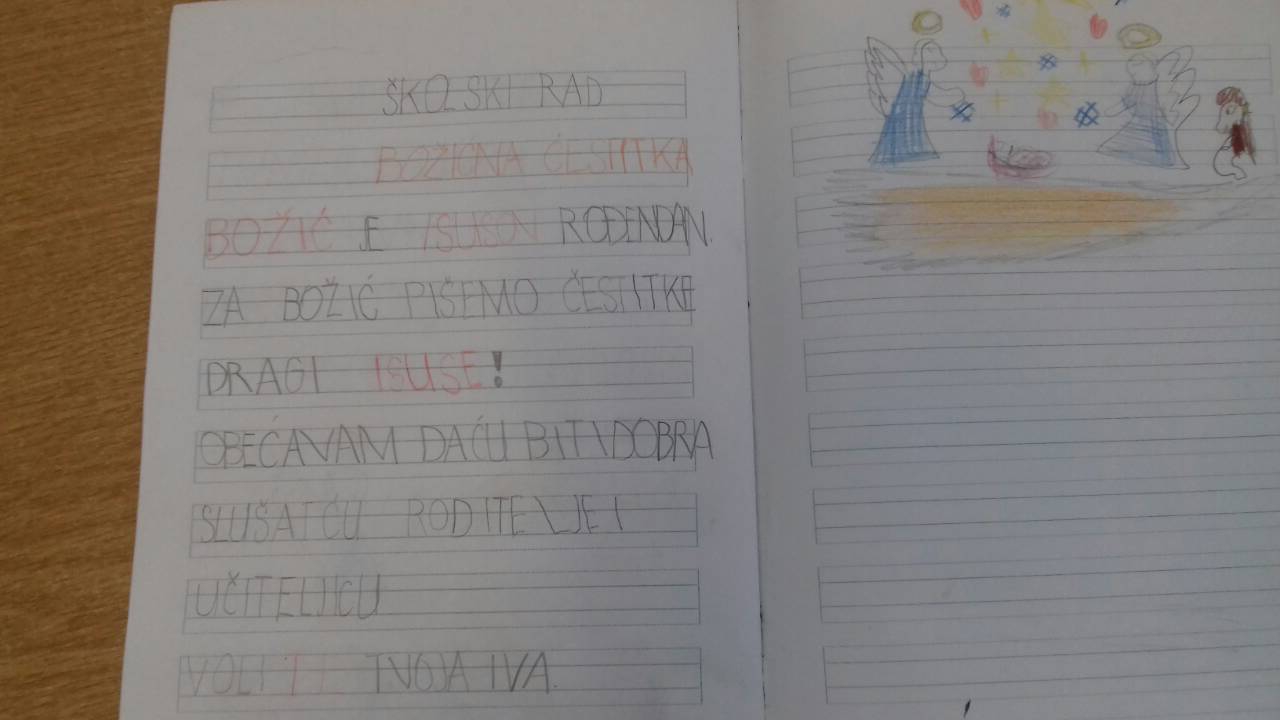 ŠKOLSKI RAD
BOŽIĆNA ČESTITKA
BOŽIĆ JE ISUSOV ROĐENDAN.
ZA BOŽIĆ PIŠEMO ČESTITKE
DRAGI ISUSE!
OBEĆAVAM DAĆU BITI DOBRA
SLUŠATĆU RODITELJE I
UČITELJICU
VOLI TE TVOJA IVA.